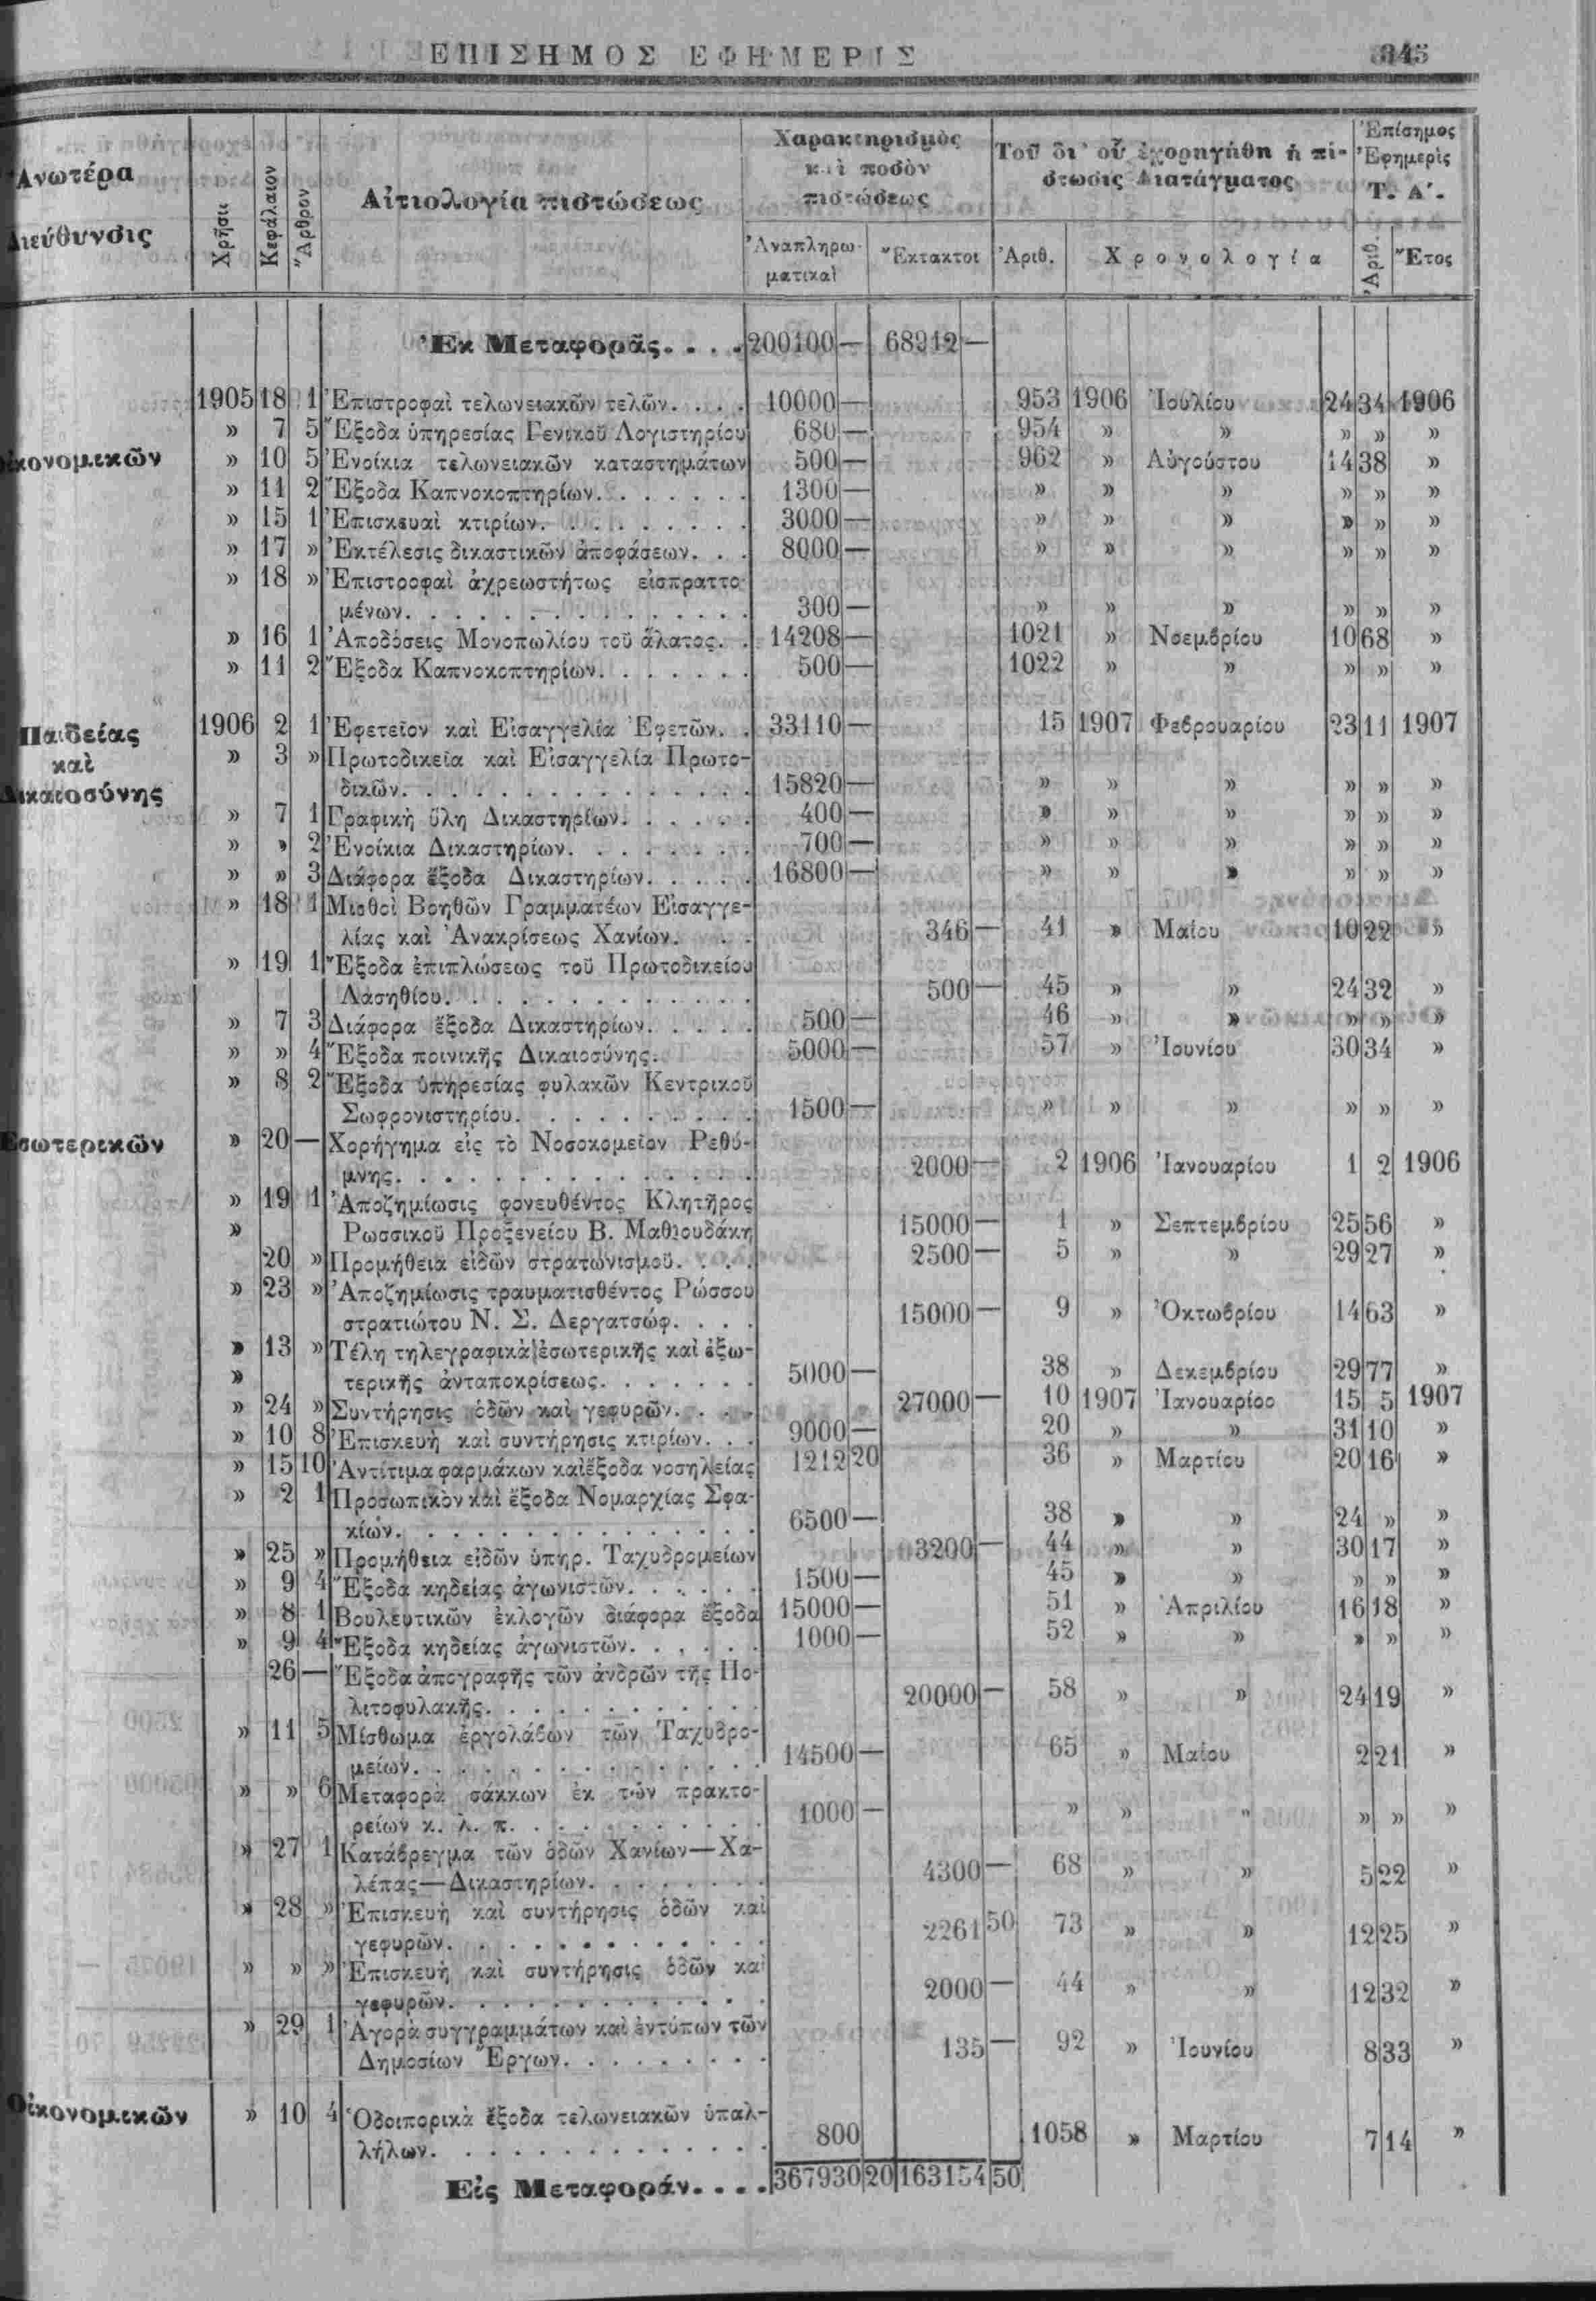 ΕΠΙΣΗΜΟΣ ΕΦΗΜΕΡΙΣ 345
Ἀνωτέρα Διεύθυνσις Χρῆσις Κεφάλαιον Ἄρθρον Αἰτιολογία πιστώσεως Χαρακτηρισμὸς καὶ ποσὸν πιστώσεως Τοῦ δι' οὗ ἐχορηγήθη ἡ πίστωσις Διατάγματος Ἐπίσημος Ἐφημερὶς Τ. Α΄.
Ἀναπληρωματικαὶ Ἔκτακτοι Ἀριθ. Χρονολογία Ἀριθ. Ἔτος
Ἐκ Μεταφορᾶς. . . . 200100 — 68912 —
1905 18 1 Ἐπιστροφαὶ τελωνειακῶν τελῶν. . . . 10000 — 953 1906 Ἰουλίου 24 34 1906
» 7 5 Ἔξοδα ὑπηρεσίας Γενικοῦ Λογιστηρίου 680 — 954 » » » » »
Οἰκονομικῶν » 10 5 Ἐνοίκια τελωνειακῶν καταστημάτων 500 — 962 » Αὐγούστου 14 38 »
» 11 2 Ἔξοδα Καπνοκοπτηρίων. . . . . . . 1300 — » » » » » »
» 15 1 Ἐπισκευαὶ κτιρίων. . . . . . . . . 3000 — » » » » » »
» 17 » Ἐκτέλεσις δικαστικῶν ἀποφάσεων. . . 8000 — » » » » » »
» 18 » Ἐπιστροφαὶ ἀχρεωστήτως εἰσπραττο-
μένων. . . . . . . . . . . . . . 300 — » » » » » »
» 16 1 Ἀποδόσεις Μονοπωλίου τοῦ ἅλατος. . 14208 — 1021 » Νοεμβρίου 10 68 »
» 11 2 Ἔξοδα Καπνοκοπτηρίων. . . . . . . 500 — 1022 » » » » »
Παιδείας 1906 2 1 Ἐφετεῖον καὶ Εἰσαγγελία Ἐφετῶν. . 33110 — 15 1907 Φεβρουαρίου 23 11 1907
καὶ » 3 » Πρωτοδικεῖα καὶ Εἰσαγγελία Πρωτο-
Δικαιοσύνης δικῶν. . . . . . . . . . . . . . 15820 — » » » » » »
» 7 1 Γραφικὴ ὕλη Δικαστηρίων. . . . . . 400 — » » » » » »
» » 2 Ἐνοίκια Δικαστηρίων. . . . . . . . 700 — » » » » » »
» » 3 Διάφορα ἔξοδα Δικαστηρίων. . . . . 16800 — » » » » » »
» 18 1 Μισθοὶ Βοηθῶν Γραμματέων Εἰσαγγε-
λίας καὶ Ἀνακρίσεως Χανίων. . . . 346 — 41 » Μαΐου 10 22 »
» 19 1 Ἔξοδα ἐπιπλώσεως τοῦ Πρωτοδικείου
Λασηθίου. . . . . . . . . . . . . 500 — 45 » » 24 32 »
» 7 3 Διάφορα ἔξοδα Δικαστηρίων. . . . . 500 — 46 » » » » »
» » 4 Ἔξοδα ποινικῆς Δικαιοσύνης. . . . . 5000 — 57 » Ἰουνίου 30 34 »
» 8 2 Ἔξοδα ὑπηρεσίας φυλακῶν Κεντρικοῦ
Σωφρονιστηρίου. . . . . . . . . . 1500 — » » » » » »
Ἐσωτερικῶν » 20 — Χορήγημα εἰς τὸ Νοσοκομεῖον Ρεθύ-
μνης. . . . . . . . . . . . . . . 2000 — 2 1906 Ἰανουαρίου 1 2 1906
» 19 1 Ἀποζημίωσις φονευθέντος Κλητῆρος
» Ρωσσικοῦ Προξενείου Β. Μαθιουδάκη 15000 — 1 » Σεπτεμβρίου 25 56 »
20 » Προμήθεια εἰδῶν στρατωνισμοῦ. . . . 2500 — 5 » » 29 27 »
» 23 » Ἀποζημίωσις τραυματισθέντος Ρώσσου
στρατιώτου Ν. Σ. Δεργατσώφ. . . . 15000 — 9 » Ὀκτωβρίου 14 63 »
» 13 » Τέλη τηλεγραφικὰ ἐσωτερικῆς καὶ ἐξω-
» τερικῆς ἀνταποκρίσεως. . . . . . . 5000 — 38 » Δεκεμβρίου 29 77 »
» 24 » Συντήρησις ὁδῶν καὶ γεφυρῶν. . . . 27000 — 10 1907 Ἰανουαρίου 15 5 1907
» 10 8 Ἐπισκευὴ καὶ συντήρησις κτιρίων. . . 9000 — 20 » » 31 10 »
» 15 10 Ἀντίτιμα φαρμάκων καὶ ἔξοδα νοσηλείας 1212 20 36 » Μαρτίου 20 16 »
» 2 1 Προσωπικὸν καὶ ἔξοδα Νομαρχίας Σφα-
κίων. . . . . . . . . . . . . . . 6500 — 38 » » 24 » »
» 25 » Προμήθεια εἰδῶν ὑπηρ. Ταχυδρομείων 3200 — 44 » » 30 17 »
» 9 4 Ἔξοδα κηδείας ἀγωνιστῶν. . . . . . 1500 — 45 » » » » »
» 8 1 Βουλευτικῶν ἐκλογῶν διάφορα ἔξοδα 15000 — 51 » Ἀπριλίου 16 18 »
» 9 4 Ἔξοδα κηδείας ἀγωνιστῶν. . . . . . 1000 — 52 » » » » »
26 — Ἔξοδα ἀπογραφῆς τῶν ἀνδρῶν τῆς Πο-
λιτοφυλακῆς. . . . . . . . . . . . 20000 — 58 » » 24 19 »
» 11 5 Μίσθωμα ἐργολάβων τῶν Ταχυδρο-
μείων. . . . . . . . . . . . . . 14500 — 65 » Μαΐου 2 21 »
» » 6 Μεταφορὰ σάκκων ἐκ τῶν πρακτο-
ρείων κ. λ. π. . . . . . . . . . . 1000 — » » » » » »
» 27 1 Κατάβρεγμα τῶν ὁδῶν Χανίων—Χα-
λέπας—Δικαστηρίων. . . . . . . . 4300 — 68 » » 5 22 »
» 28 » Ἐπισκευὴ καὶ συντήρησις ὁδῶν καὶ
γεφυρῶν. . . . . . . . . . . . . 2261 50 73 » » 12 25 »
» » » Ἐπισκευὴ καὶ συντήρησις ὁδῶν καὶ
γεφυρῶν. . . . . . . . . . . . . 2000 — 44 » » 12 32 »
» 29 1 Ἀγορὰ συγγραμμάτων καὶ ἐντύπων τῶν
Δημοσίων Ἔργων. . . . . . . . . 135 — 92 » Ἰουνίου 8 33 »
Οἰκονομικῶν » 10 4 Ὁδοιπορικὰ ἔξοδα τελωνειακῶν ὑπαλ-
λήλων. . . . . . . . . . . . . . 800 1058 » Μαρτίου 7 14 »
Εἰς Μεταφοράν. . . . 367930 20 163154 50